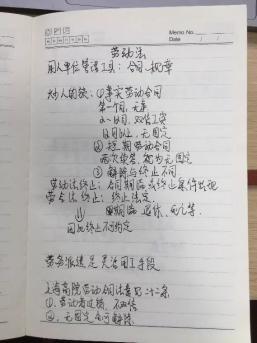 Memo No.
Date / /
劳动法
用人单位管理工具：合同、规章
大的人的效：①事实劳动合同
第一个月，无事
2~12月，双倍工资
12月以上，无固定
②短期劳动合同
两次续签，视为无固定
③解除与终止不同
劳动法终止：合同期满或终止条件出现
劳合法终止：终止法定
期满 退休、死亡等.
因此终止不可约定
劳务派遣是灵活用工手段
上海高院劳动合同法意见二十二条
①劳动者过错，不双倍
②无固定合同解除